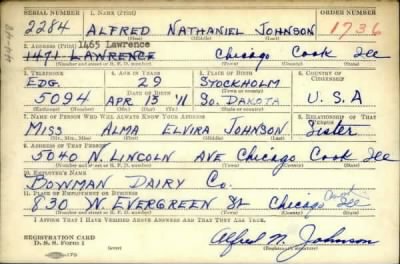 SERIAL NUMBER 1. NAME (Print) ORDER NUMBER
2284 ALFRED NATHANIEL JOHNSON 1736
(First) (Middle) (Last)
2. ADDRESS (Print) 1465 Lawrence
1471 LAWRENCE Chicago Cook Ill
(Number and street or R. F. D. number) (Town) (County) (State)
3. TELEPHONE 4. AGE IN YEARS 5. PLACE OF BIRTH 6. COUNTRY OF CITIZENSHIP
EDG. 29 STOCKHOLM
DATE OF BIRTH (Town or county)
5094 APR 27 11 SO. DAKOTA U. S. A
(Exchange) (Number) (Mo.) (Day) (Yr.) (State or country)
7. NAME OF PERSON WHO WILL ALWAYS KNOW YOUR ADDRESS 8. RELATIONSHIP OF THAT PERSON
MISS ALMA ELVIRA JOHNSON Sister
(Mr., Mrs., Miss) (First) (Middle) (Last)
9. ADDRESS OF THAT PERSON
5040 N. LINCOLN AVE Chicago Cook Ill
(Number and street or R. F. D. number) (Town) (County) (State)
10. EMPLOYER'S NAME
BOWMAN DAIRY Co.
11. PLACE OF EMPLOYMENT OR BUSINESS
830 W. EVERGREEN St Chicago Cook Ill
(Number and street or R. F. D. number) (Town) (County) (State)
I AFFIRM THAT I HAVE VERIFIED ABOVE ANSWERS AND THAT THEY ARE TRUE.
REGISTRATION CARD
D. S. S. Form 1 Alfred N. Johnson
(over) (Registrant's signature)